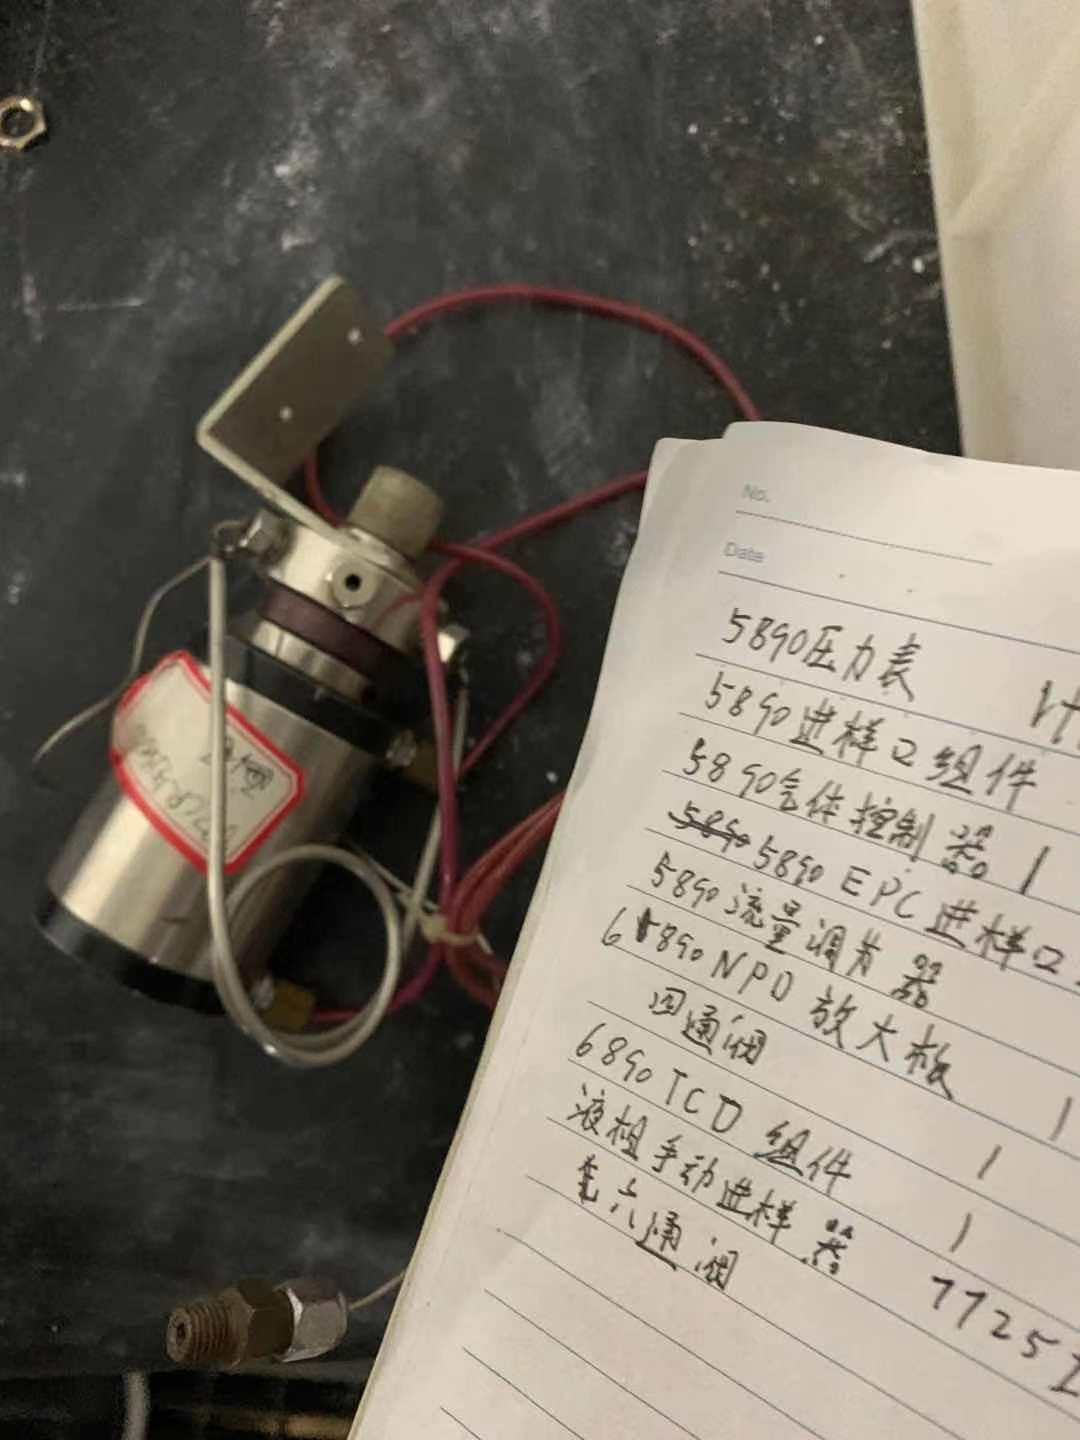 No.
Date
5890压力表
5890进样口组件
5890气体控制器 1
5890 5890 EPC进样口
5890流量调节器
6890 NPD 放大板 1
四通阀
6890 TCD 组件 1
液相手动进样器 1
六通阀 7725I